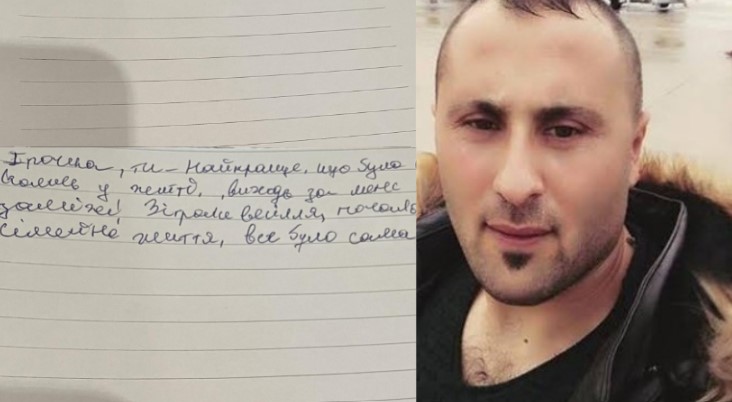 Ірочка, ти – найкраще, що було
колись у житті, виходь за мене
заміж! Зіграли весілля, почаль
сімейне життя, все було сама